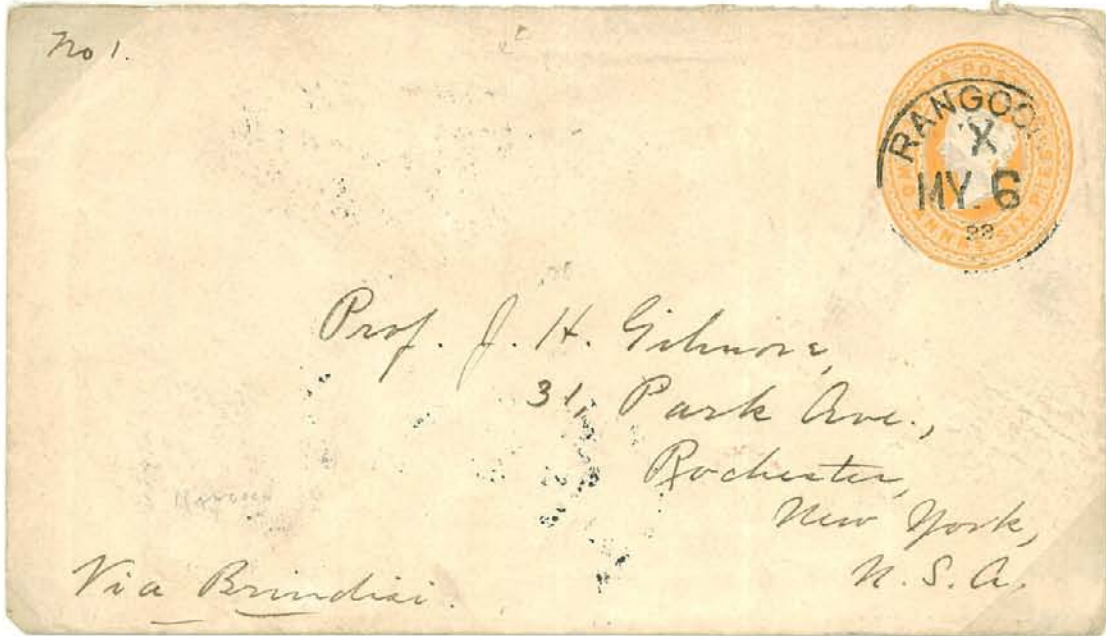 No 1.
RANGOON
X
MY. 6
Prof. J. H. Gilmore,
31, Park Ave.,
Rochester,
New York,
U. S. A.
Via Brindisi.